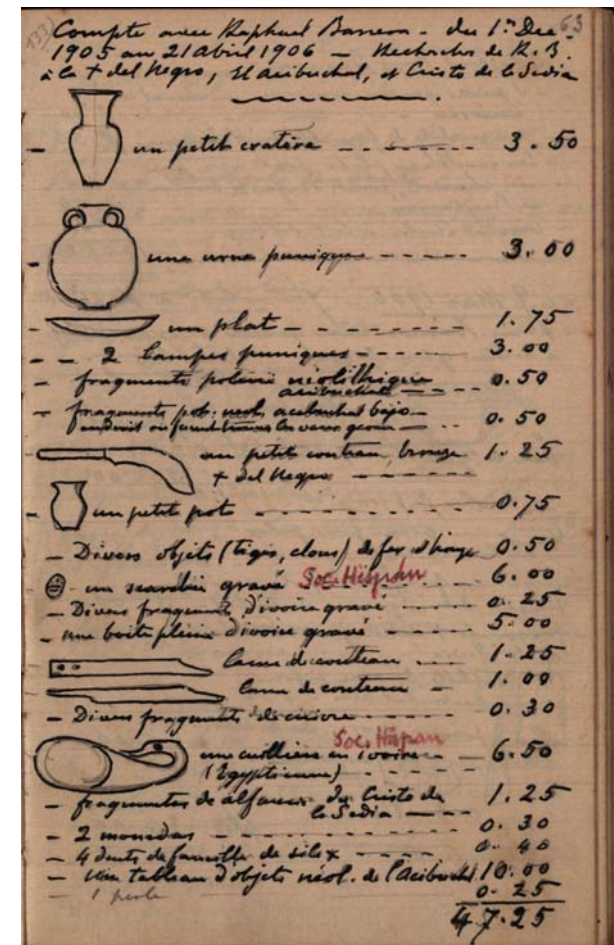 137) 63
Compte avec Raphael Barrera - du 1er Dec.
1905 au 21 Abril 1906 - Recherches de R. B.
à la + del Negro, El Acibuchal, et Cristo de la Sedia
- un petit cratère - 3.50
- une urne punique - 3.00
- un plat - 1.75
- - 2 lampes puniques - 3.00
- fragments poterie néolithique 0.50
acibuchal
- fragments pot. neol. acebuchal bajo - 0.50
endroit où furent les vases
- un petit couteau, bronze 1.25
+ del Negro -
- un petit pot - 0.75
- Divers objets (tiges, clous) de fer et bronze 0.50
- un scarabée gravé Soc. Hispan 6.00
- Divers fragments d'ivoire gravé - 0.25
- une boite pleine d'ivoire gravé - 5.00
lame de couteau - 1.25
lame de couteau - 1.00
- Divers fragments de cuivre - 0.30
Soc. Hispan
une cuillière en ivoire - 6.50
(Egyptienne) -
- fragmentos de alfareria du Cristo de 1.25
la Sedia -
- 2 monedas - 0.30
- 4 dents de faucille de silex - 0.40
- un tableau d'objets néol. de l'Acibuchal 10.00
- 1 perle 0.25
47.25